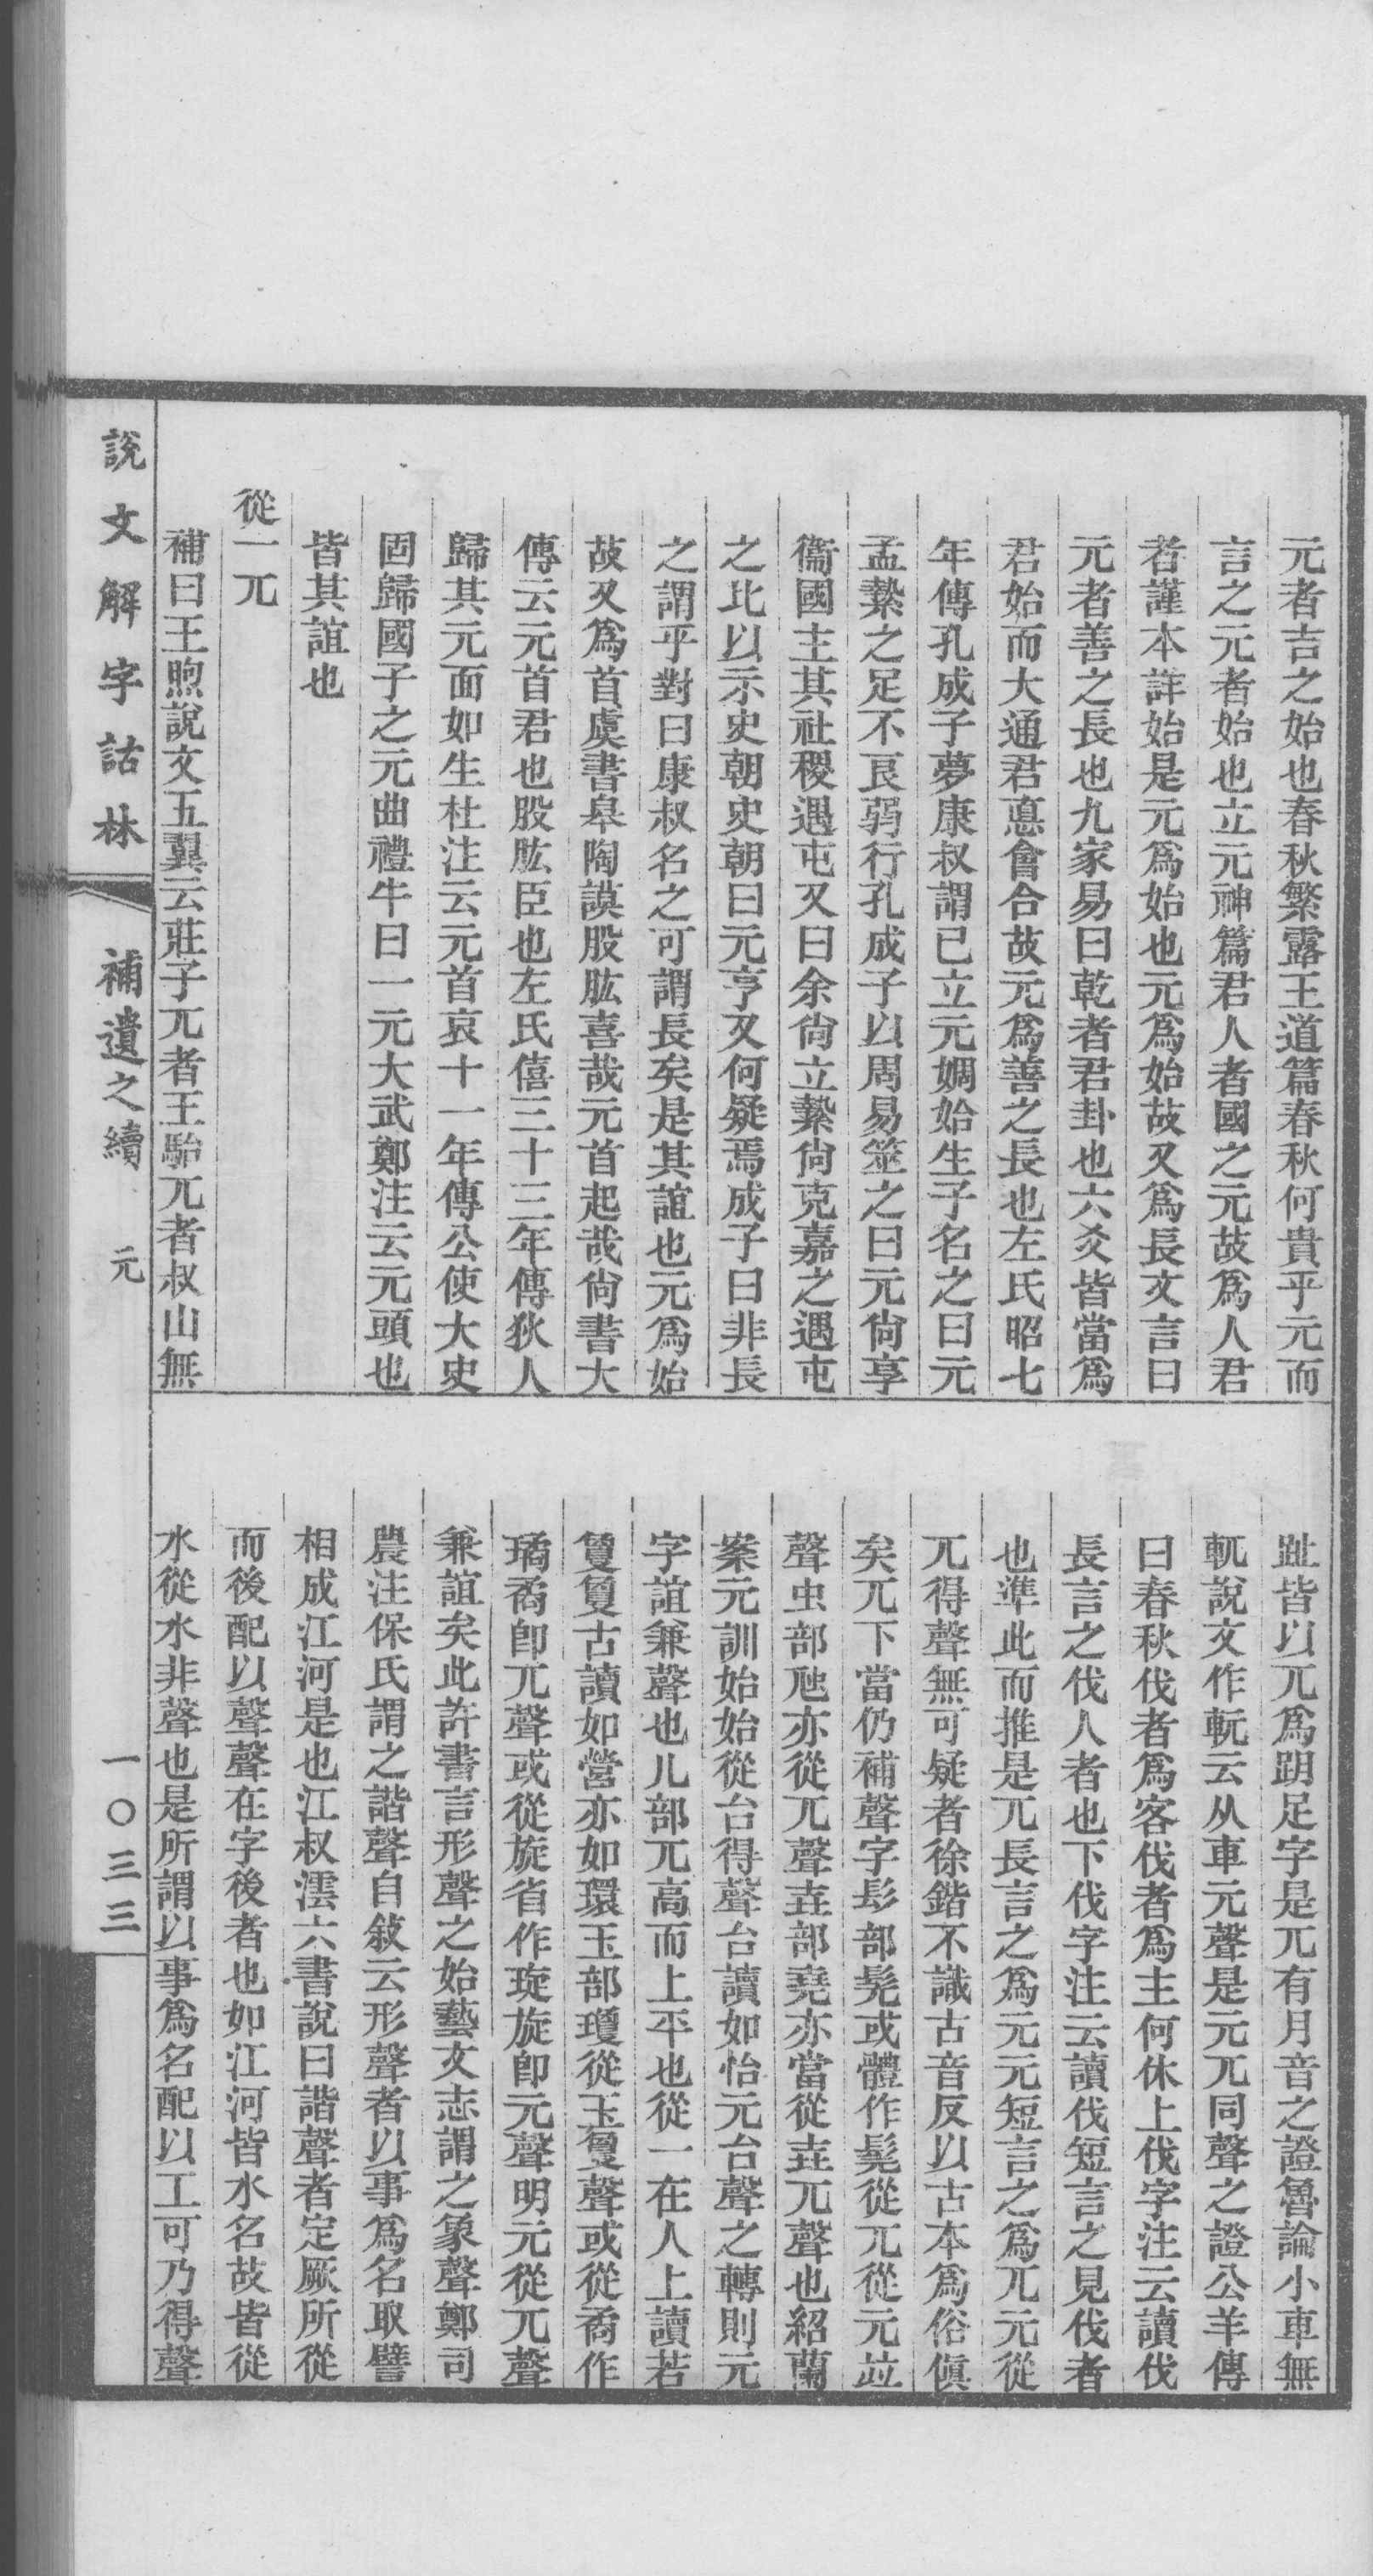 元者吉之始也春秋繁露王道篇春秋何貴乎元而
言之元者始也立元神篇君人者國之元故爲人君
者謹本詳始是元爲始也元爲始故又爲長文言曰
元者善之長也九家易曰乾者君卦也六爻皆當爲
君始而大通君悳會合故元爲善之長也左氏昭七
年傳孔成子夢康叔謂已立元婤始生子名之曰元
孟縶之足不良弱行孔成子以周易筮之曰元尙享
衞國主其社稷遇屯又曰余尙立縶尙克嘉之遇屯
之比以示史朝史朝曰元亨又何疑焉成子曰非長
之謂乎對曰康叔名之可謂長矣是其誼也元爲始
故又爲首虞書皋陶謨股肱喜哉元首起哉尙書大
傳云元首君也股肱臣也左氏僖三十三年傳狄人
歸其元面如生杜注云元首哀十一年傳公使大史
固歸國子之元曲禮牛曰一元大武鄭注云元頭也
皆其誼也
從一兀
補曰王煦說文五翼云莊子兀者王駘兀者叔山無
趾皆以兀爲跀足字是兀有月音之證魯論小車無
軏說文作軏云从車元聲是元兀同聲之證公羊傳
曰春秋伐者爲客伐者爲主何休上伐字注云讀伐
長言之伐人者也下伐字注云讀伐短言之見伐者
也準此而推是兀長言之爲元元短言之爲兀元從
兀得聲無可疑者徐鍇不識古音反以古本爲俗傎
矣兀下當仍補聲字髟部髡或體作髨從兀從元竝
聲虫部虺亦從兀聲垚部堯亦當從垚兀聲也紹蘭
案元訓始始從台得聲台讀如怡元台聲之轉則元
字誼兼聲也儿部兀高而上平也從一在人上讀若
敻敻古讀如營亦如環玉部瓊從玉敻聲或從矞作
璚矞卽兀聲或從旋省作琁旋卽元聲明元從兀聲
兼誼矣此許書言形聲之始藝文志謂之象聲鄭司
農注保氏謂之諧聲自敍云形聲者以事爲名取譬
相成江河是也江叔澐六書說曰諧聲者定厥所從
而後配以聲聲在字後者也如江河皆水名故皆從
水從水非聲也是所謂以事爲名配以工可乃得聲
說文解字詁林
補遺之續
元
一〇三三